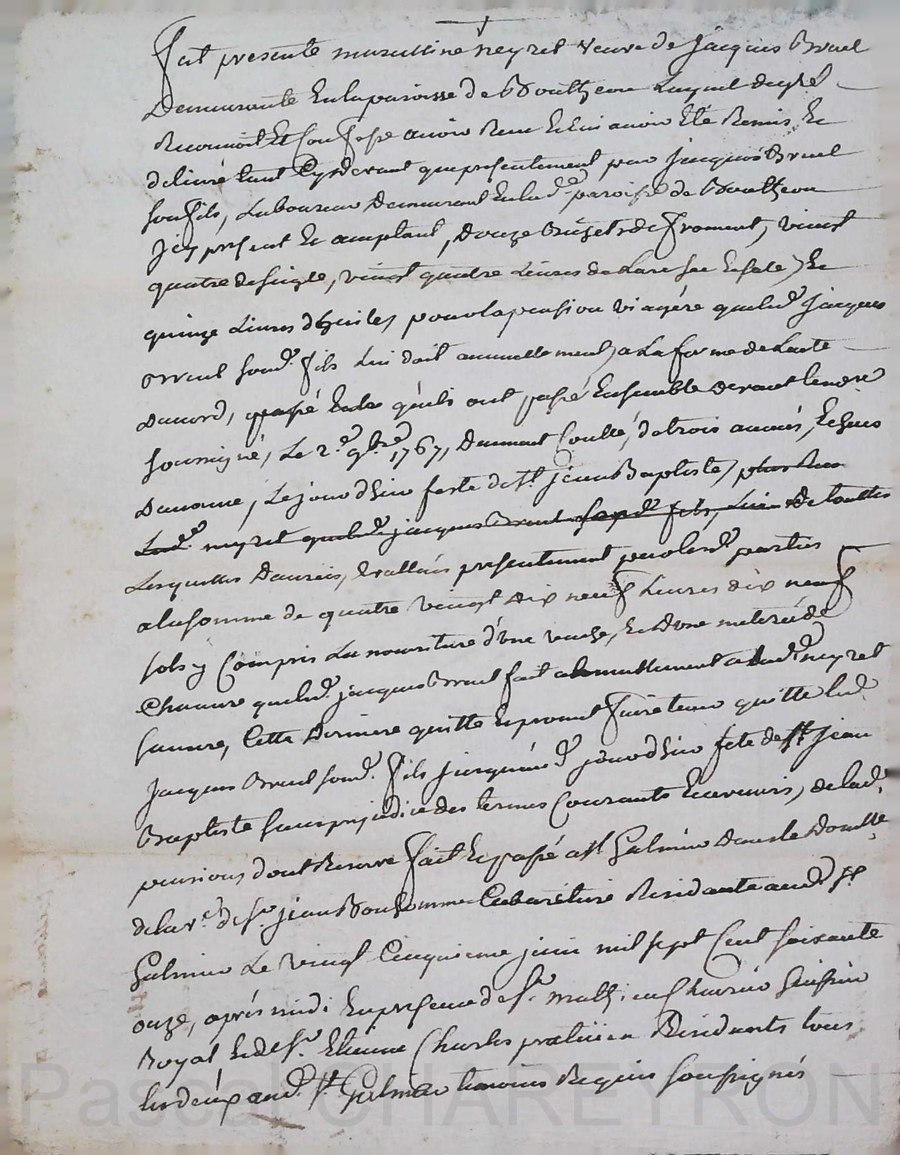 fut presente marcelline neyret veuve de Jacques Bruel
Demeurante En la paroisse de Boutheon Laquel de gré
Reconnoit Et Confesse avoir Receu Et Lui avoir Eté Remis Et
delivré tant Cydevant que presentement par Jacques Bruel
son fils, Laboureur Demeurant En lad.e paroisse de Boutheon
Icy present Et acceptant, Douze Bichets de froment, vingt
quatre de seigle, vingt quatre Livres de Lard sec Et salé, Et
quinze Livres d'huiles pour la pension viagère que led. Jacques
Bruel sond. fils Lui doit annuellement, a La forme de Lacte
Daccord, passé Entre quils ont passé Ensemble devant le no.re
soussigné, Le 2.e 9bre 1767, Dument Collé, de trois années, Echeus
Danonne, Le jour d'hui feste de St. jean Baptiste,
neyret que led. jacques Bruel sond. fils, De touttes
Lesquelles Danrées, Evalluées presentement par les d. parties
a la somme de quatre vingt Dix neuf Livres dix neuf
sols y Compris La nourriture d'une vache, Et D'une meterée de
Chanvre que led. jacques Bruel fait annuellement a lad. neyret
sa mere, Cette Derniere quitte Et promet faire tenir quitte led.
Jacques Bruel sond. fils jusqu'aud. jour d'hui fete de St. jean
Baptiste sans prejudice des termes Courants Et avenirs, de lad.
pensions dont Reserve fait Et passé a St. Galmier Dans le Domicille
de la v.e de Sr. jean Bonhomme Cabaretiere Residante aud. St.
Galmier Le vingt Cinquieme juin mil sept Cent soixante
onze, après midi En presence de Sr. Mathieu huissier
Royal Et de Sr. Etienne Charles praticien Residants tous
les deux aud. St. Galmier temoins Requis soussignés
Pascal CHAREYRON